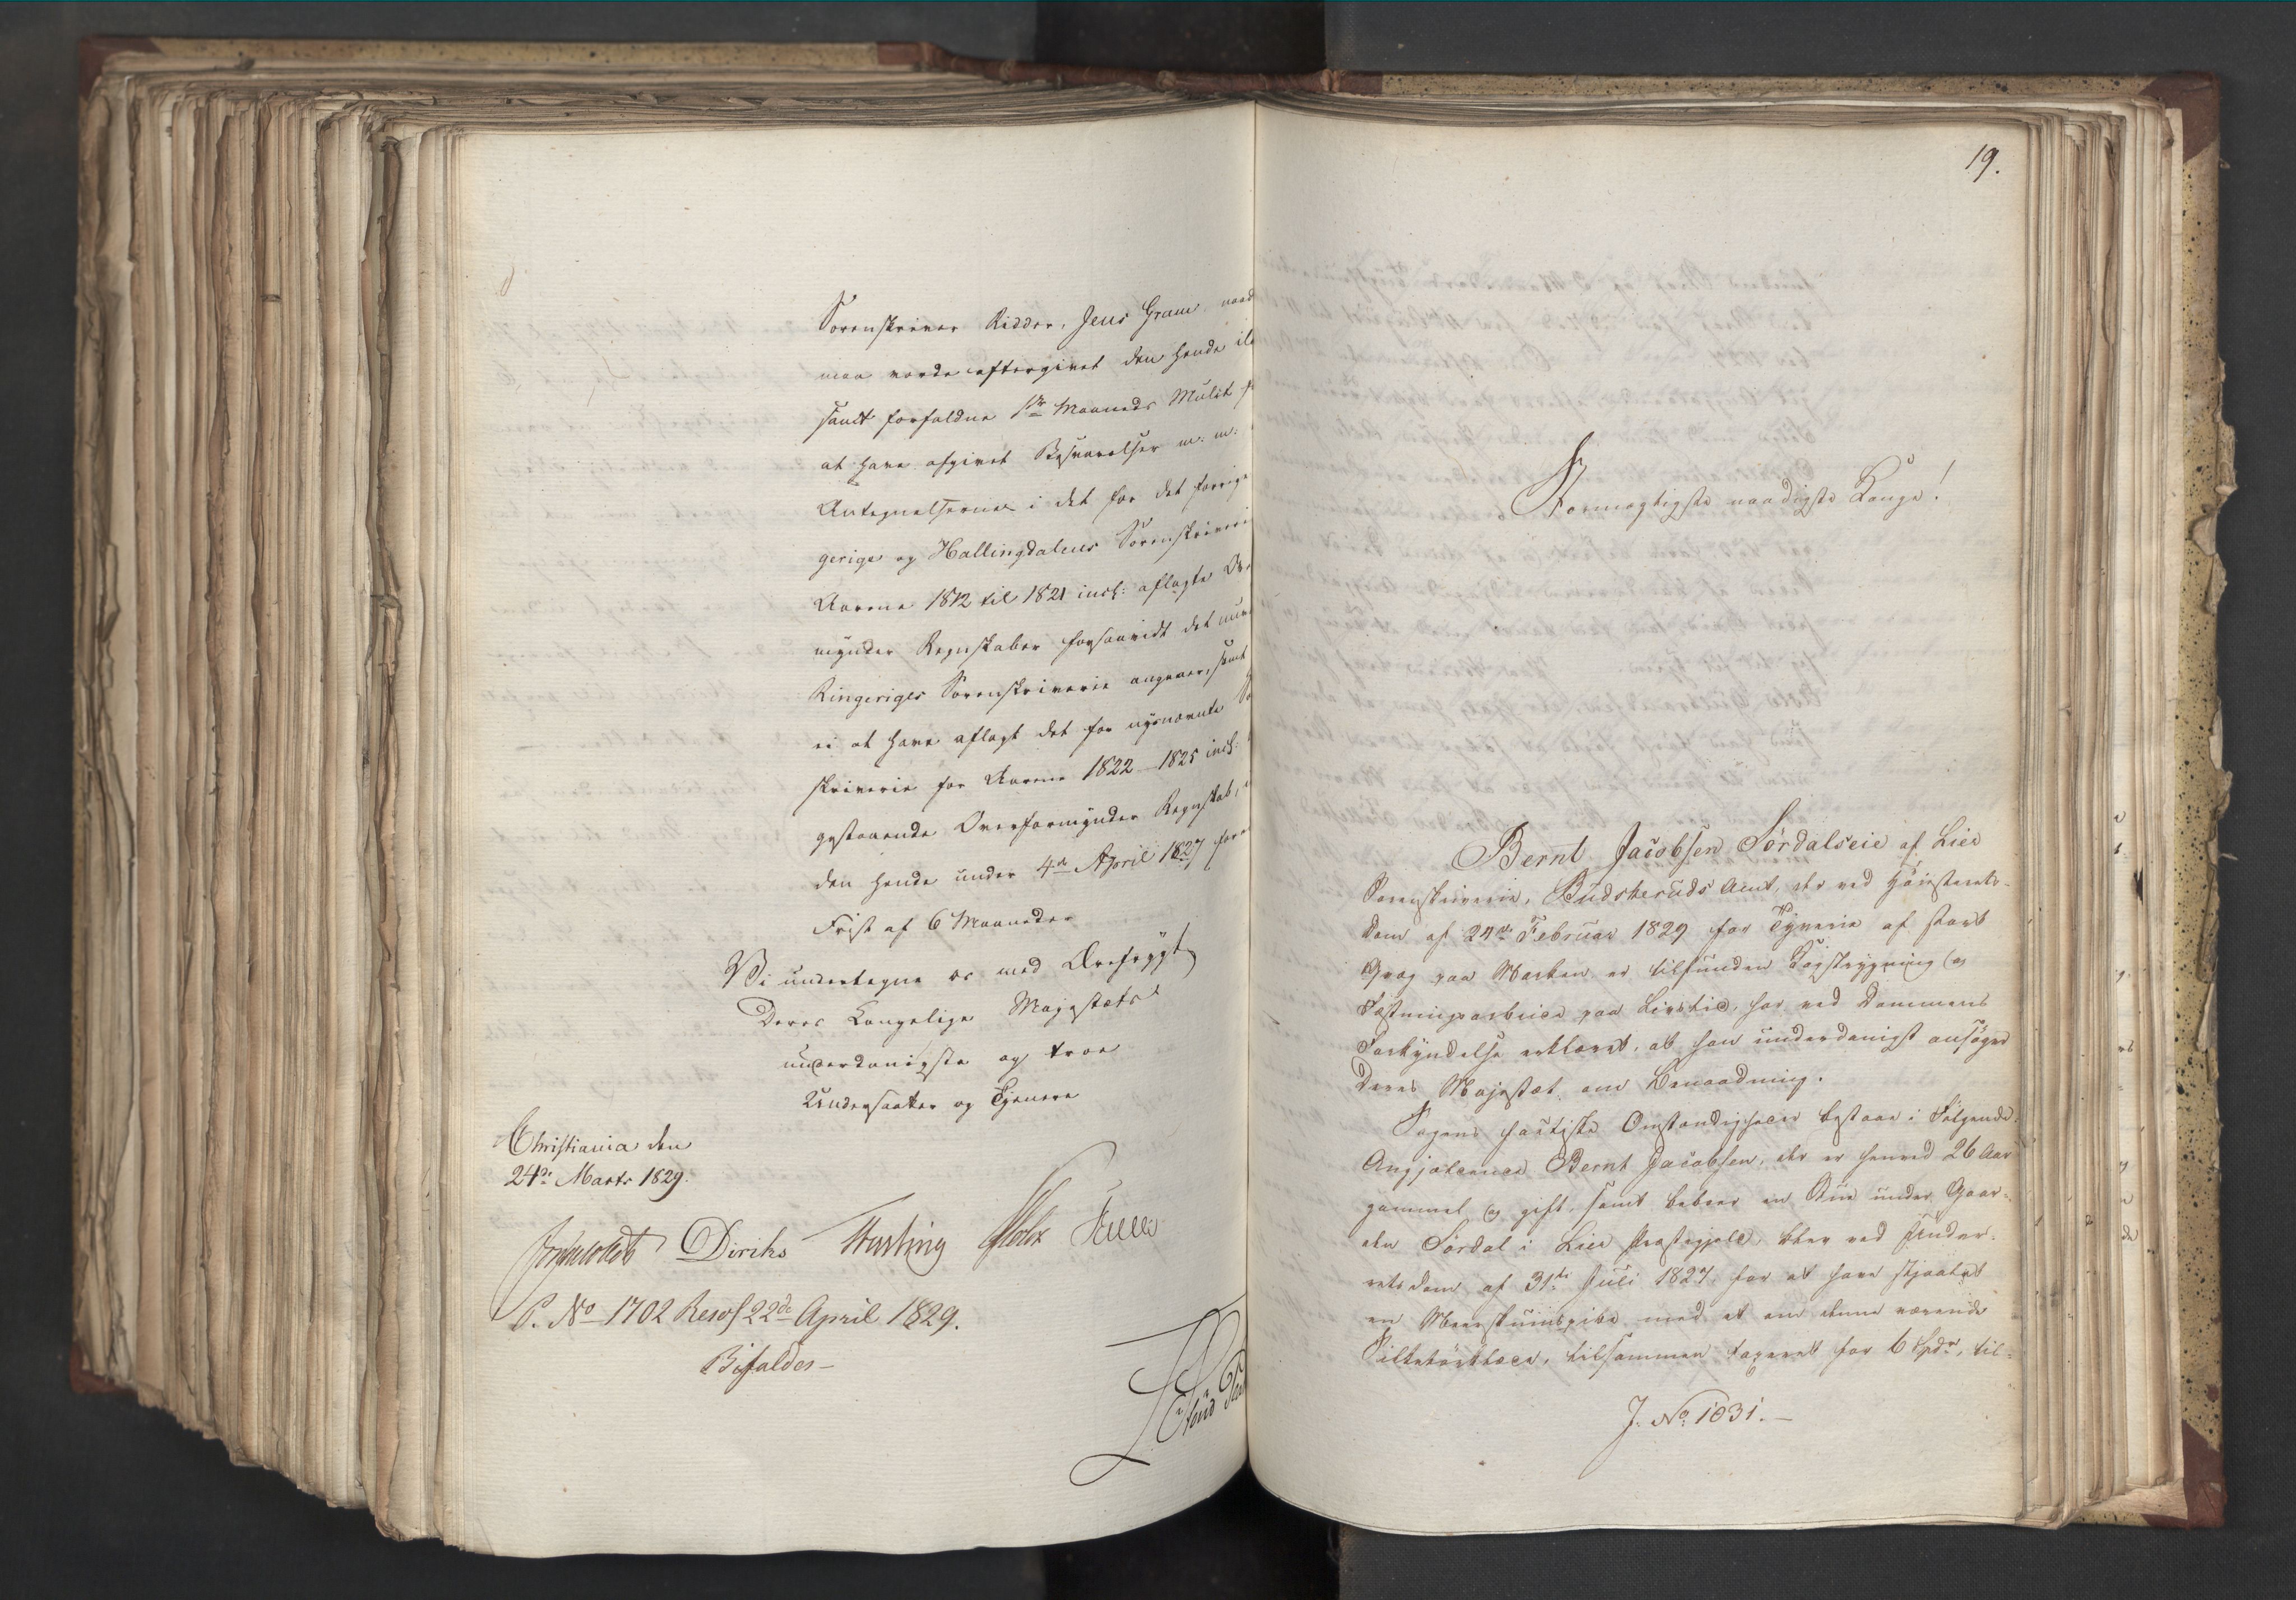 Sorenskriver Ridder, Jens Gram, naad
maa vorde eftergivet den hende ile
samt forfaldne 1ste Maaneds Mulct f
at have afgivet Besvarelser m. m.
Antegnelserne i det for det forrige
gerige og Hallingdalens Sorenskriveri
Aarene 1812 til 1821 incl: aflagte Ov
mynder Regnskaber forsaavidt det nuv
Ringeriges Sorenskriverie angaaer, samt
ei at have aflagt det for nysnævnte So
skriverie for Aarene 1822–1825 incl:
gestaaende Overformynder Regnskab,
den hende under 4de April 1827 fore
Frist af 6 Maaneder
Vi undertegne os med Ærefrygt
Deres Kongelige Majestæts
underdanigste og troe
Undersaatter og Tjenere
Christiania den
24de Marts 1829.
Diriks
P. No 1702 Resol 22de April 1829.
Bifaldes–
19.
Stormægtigste naadigste Konge!
Bernt Jacobsen Sørdalseie af Lier
Sorenskriverie, Budskeruds Amt, der ved Høiesterets-
dom af 24de Februar 1829 for Tyverie af stort
Qvæg paa Marken er tilfunden Kagstrygning og
Fæstningsarbeide paa Livstid, har ved Dommens
Forkyndelse erklæret, at han underdanigst ansøger
Deres Majestæt om Benaadning.
Sagens factiske Omstændigheder bestaae i Følgende:
Angjældende Bernt Jacobsen, der er henved 26 Aar
gammel og gift, samt beboer en Stue under Gaar-
den Sørdal i Lier Præstegjeld, blev ved Under-
retsdom af 31te Juli 1827 for at have stjaalet
en Meerskumspibe med et om denne værende
Silketørklæde, tilsammen taxeret for 6 Spdr, til-
J. No 1031.–